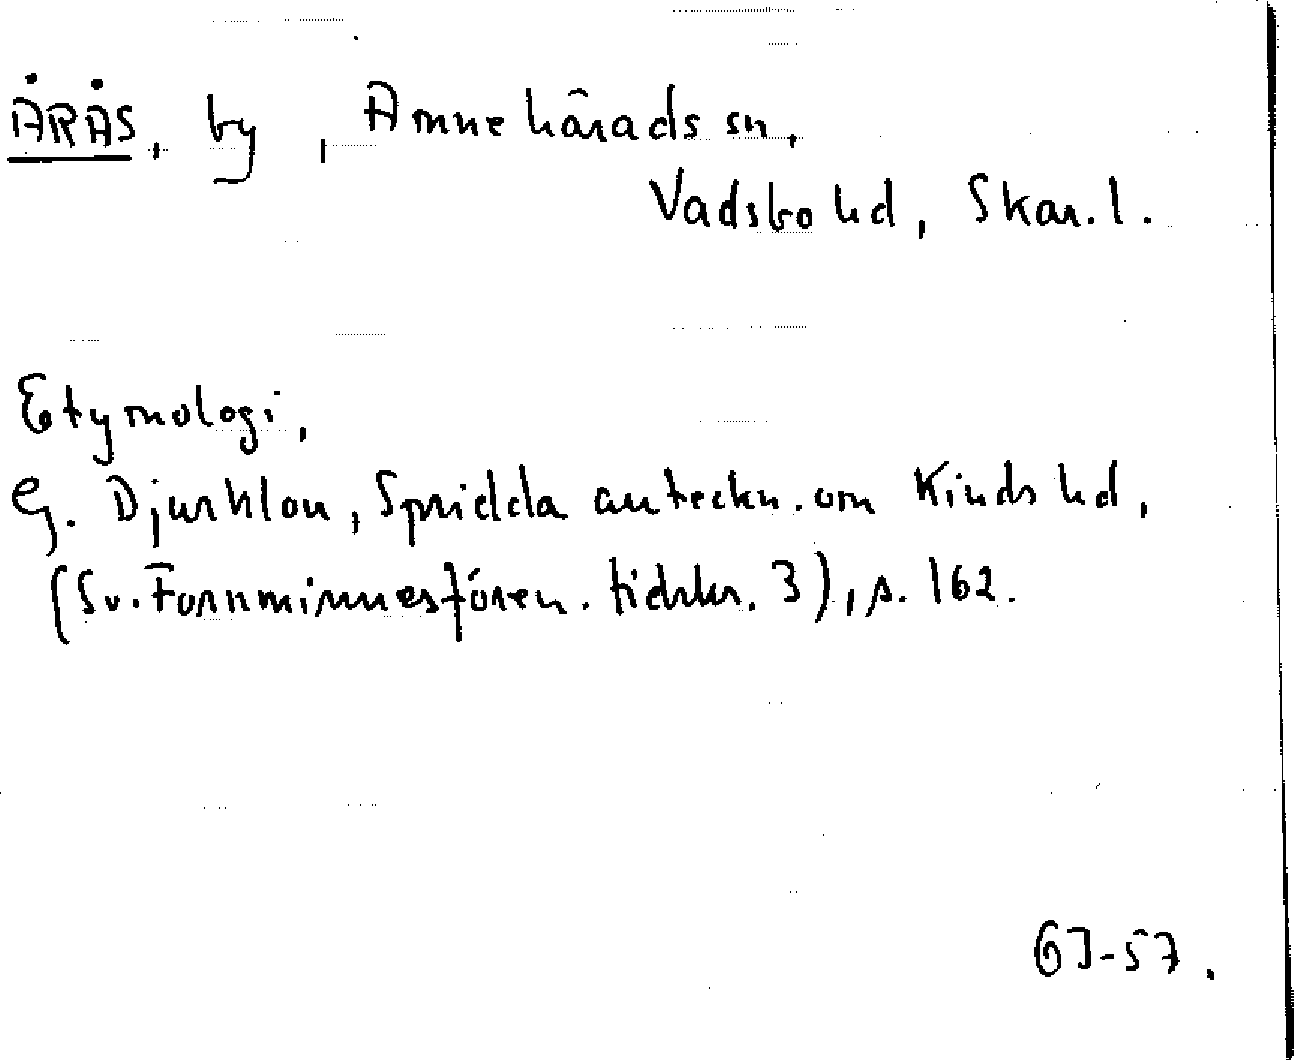 ÅRÅS, by, Amnehärads sn,
Vadsbo hd, Skar. l.
Etymologi,
G. Djurklou, Spridda anteckn. om Kinds hd,
(Sv. Fornminnesfören. tidskr. 3), s. 162.
GJ-57.